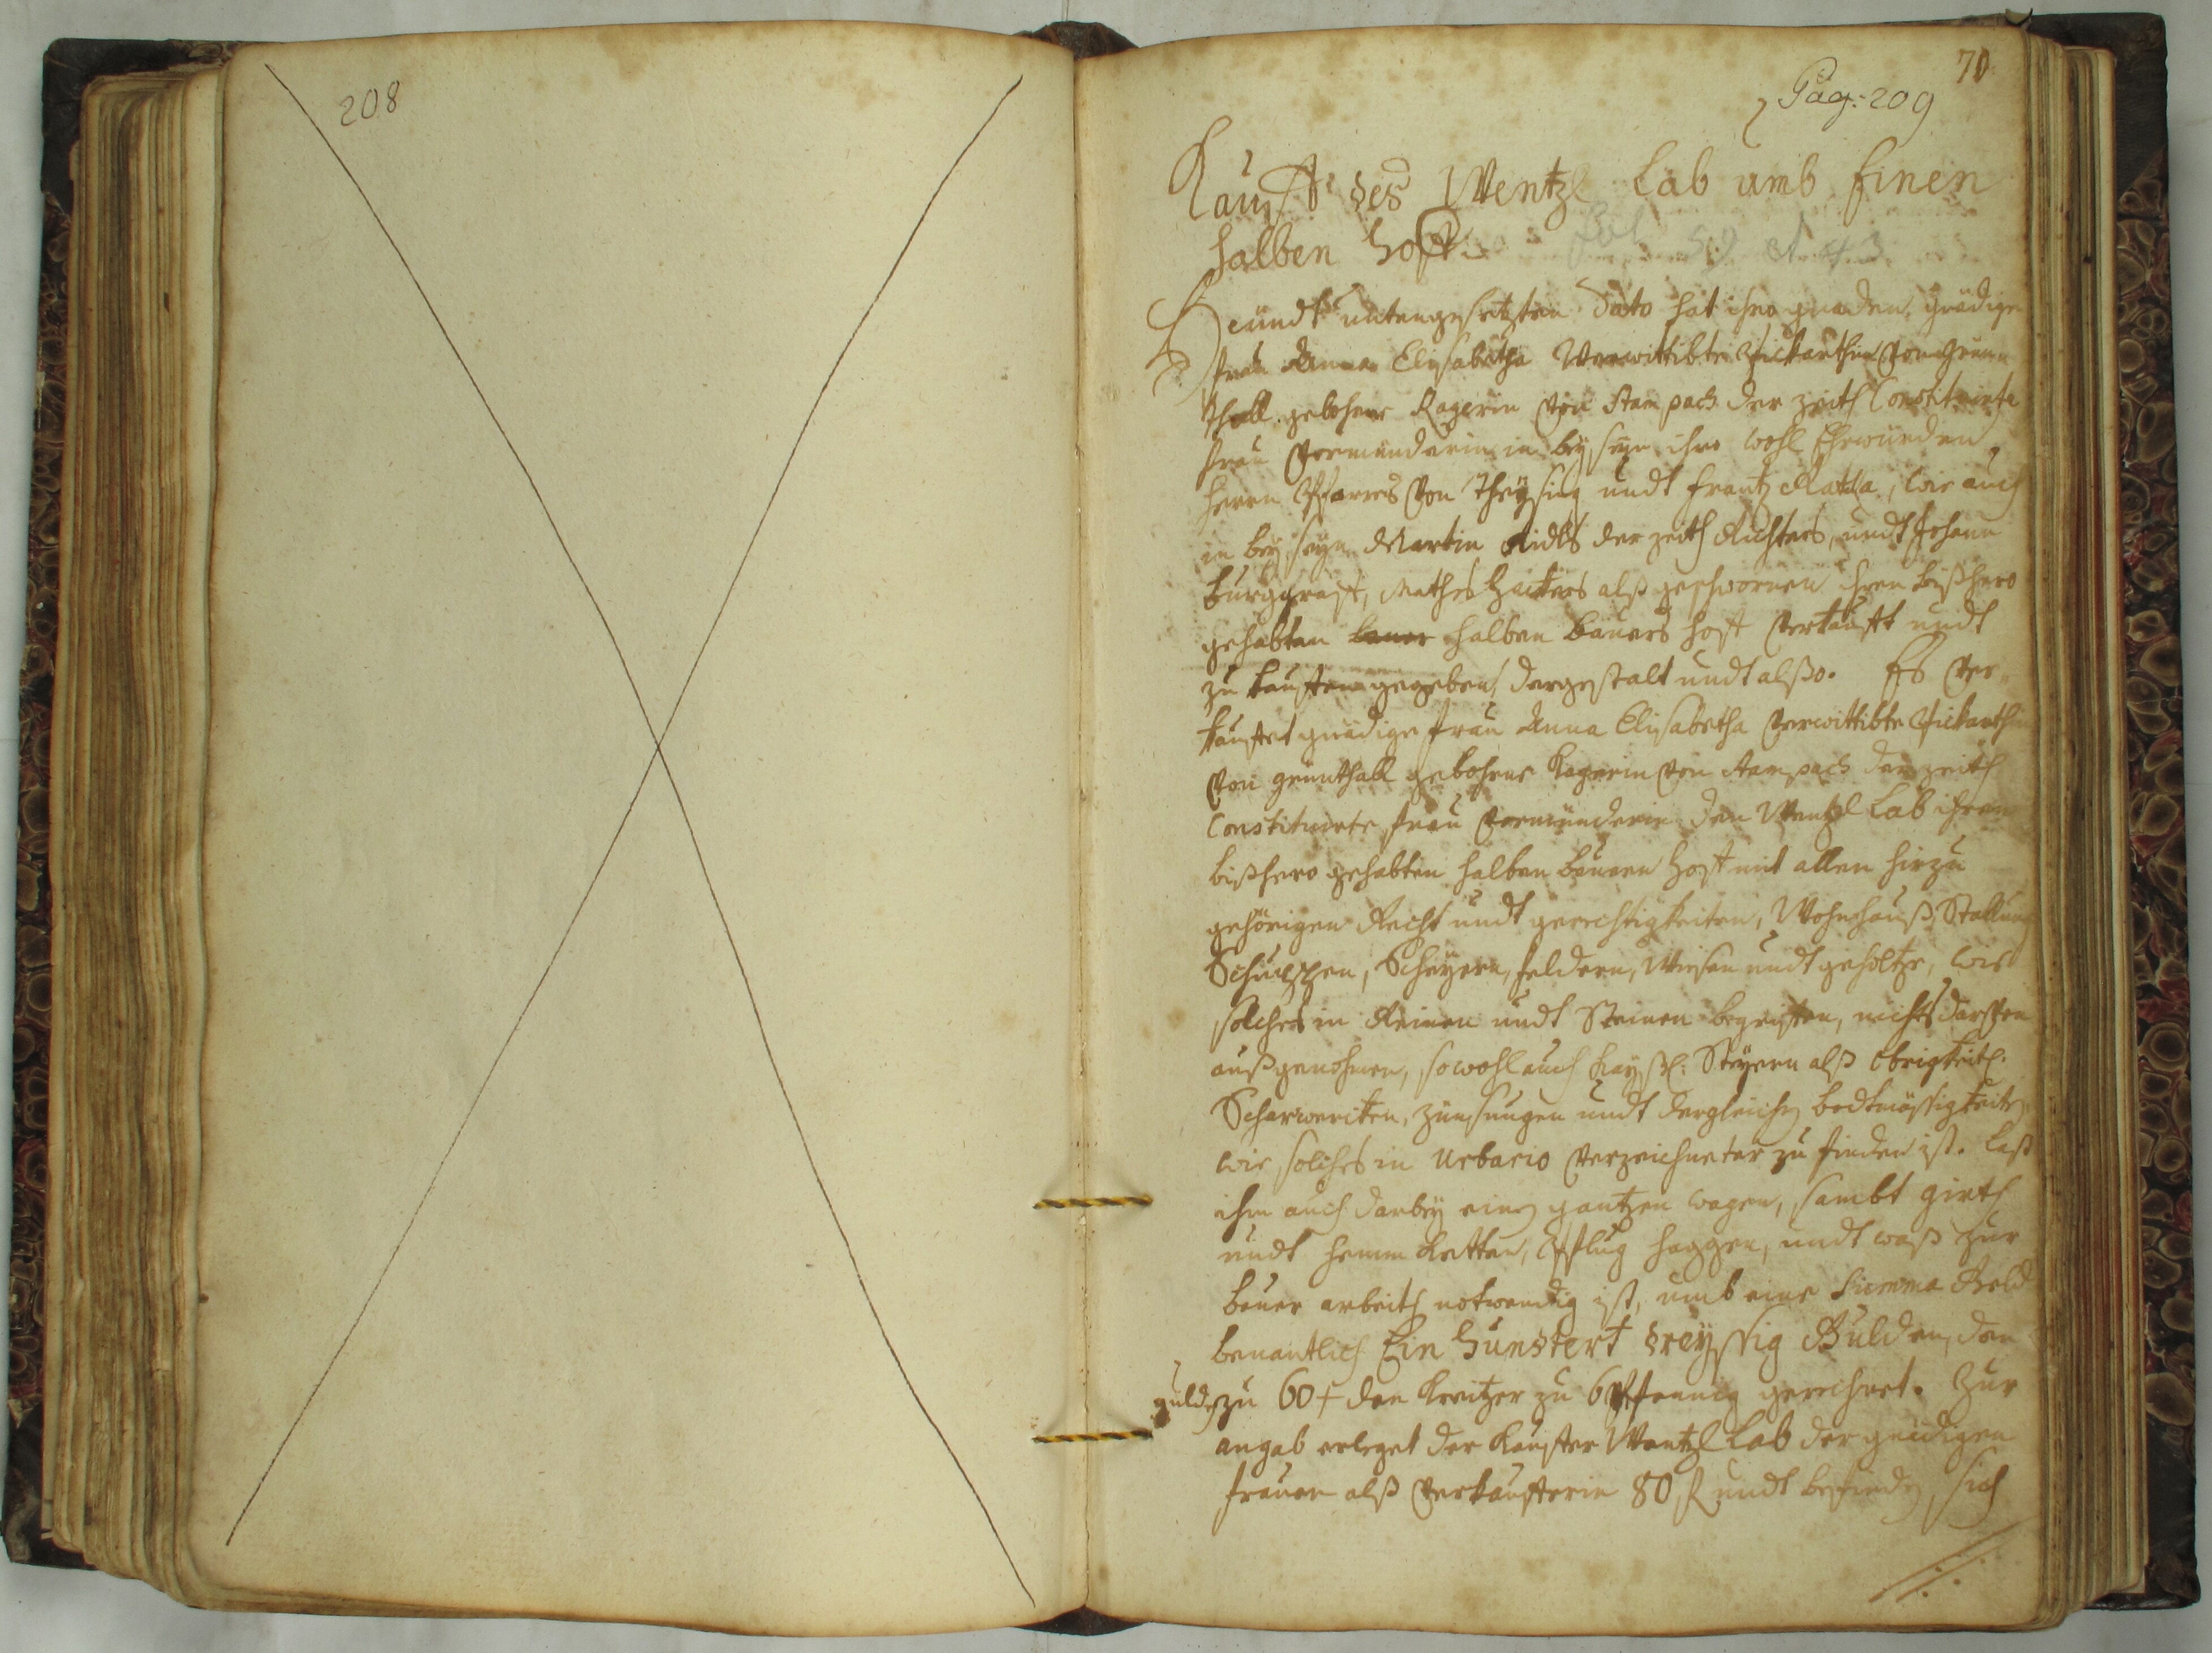 208
70
Pag: 209
Kaufft des Wentzl Lab umb Einen
halben Hoff
Heündt untengesetzten Dato hat ihro gnaden, gnädige
frau Anna Elisabetha Verwittibte Pickarthin von Grünn
thall gebohrne Kagerin von Stampach der zeith Constituirte
frau Vormünderin in beyseyn ihro wohl Ehrwürden
Herrn Pfarres von Theysing undt Frantz Ratka, wie auch
in bey seyn Martin Ridls der zeith Richters, undt Johann
Burggraff, Mathes Hackers alß geschwornen ihren bißhero
gehabten halben Bauers Hoff verkaufft undt
zu kauffen gegeben, dergestalt undt alßo. Es ver-
kauffet gnädige frau Anna Elisabetha verwittibte Pickarthin
von Grünthall gebohrne Kagerin von Stampach der zeith
Constituirte frau vormünderin den Wentzl Lab ihren
bißhero gehabten halben bauern Hoff mit allen hinzu
gehörigen Recht undt gerechtigkeiten, Wohnhauß, Stallung
Schupffen, Scheyern, feldern, Wiesen undt geholtze, wie
solches in Reinen undt Steinen begriffen, nichts darvon
außgenohmen, sowohl auch Kayßl: Steyern alß Obrigkeitl:
Scharwercken, Zünsungen undt dergleichen bottmässigkeiten
wie solches in Urbario verzeichneter zu finden ist. Last
ihm auch darbey einen gantzen wagen, sambt
undt hemm Ketten, Pflug haggen, undt waß zur
bauer arbeith notwendig ist, umb eine Summa Geld
benantlich Ein Hundert dreyssig Gulden, den
gulden zu 60 x den Kreutzer zu 6 Pfennig gerechnet. Zur
angab erleget der Kauffer Wentzl Lab der gnädigen
frauen alß verkaufferin 80 f undt befinden sich